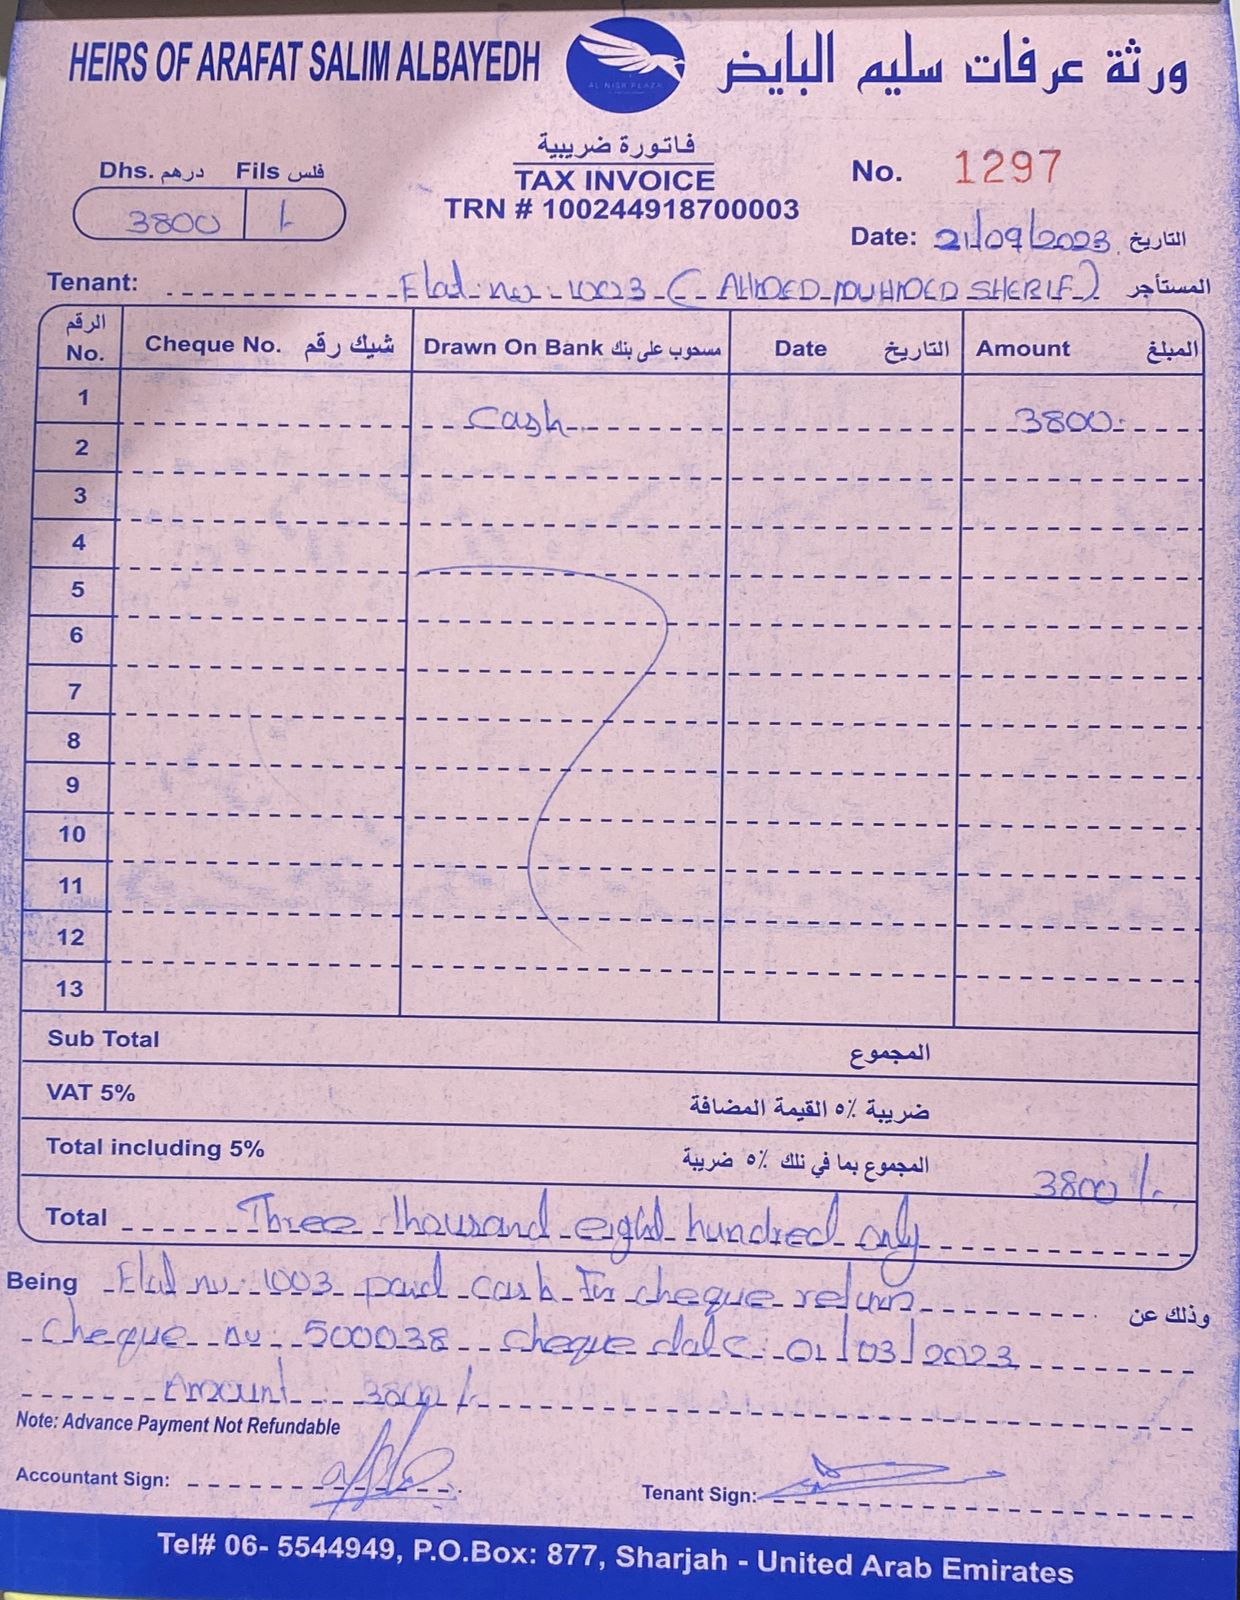 HEIRS OF ARAFAT SALIM ALBAYEDH
AL NISR PLAZA
ورثة عرفات سليم البايض
فاتورة ضريبية
TAX INVOICE
TRN # 100244918700003
Dhs. درهم Fils فلس
3800 /-
No. 1297
Date: 21/09/2023 التاريخ
Tenant: Flat no 1003 ( AHMED MUHMED SHERIF ) المستأجر
الرقم No. Cheque No. شيك رقم Drawn On Bank مسحوب على بنك Date التاريخ Amount المبلغ
1 Cash 3800
2
3
4
5
6
7
8
9
10
11
12
13
Sub Total المجموع
VAT 5% ضريبة ٥٪ القيمة المضافة
Total including 5% المجموع بما في ذلك ٥٪ ضريبة 3800 /-
Total Three thousand eight hundred only
Being Flat no: 1003 paid cash for cheque return وذلك عن
cheque no 500038 cheque date: 01/03/2023
Amount 3800 /-
Note: Advance Payment Not Refundable
Accountant Sign:
Tenant Sign:
Tel# 06- 5544949, P.O.Box: 877, Sharjah - United Arab Emirates